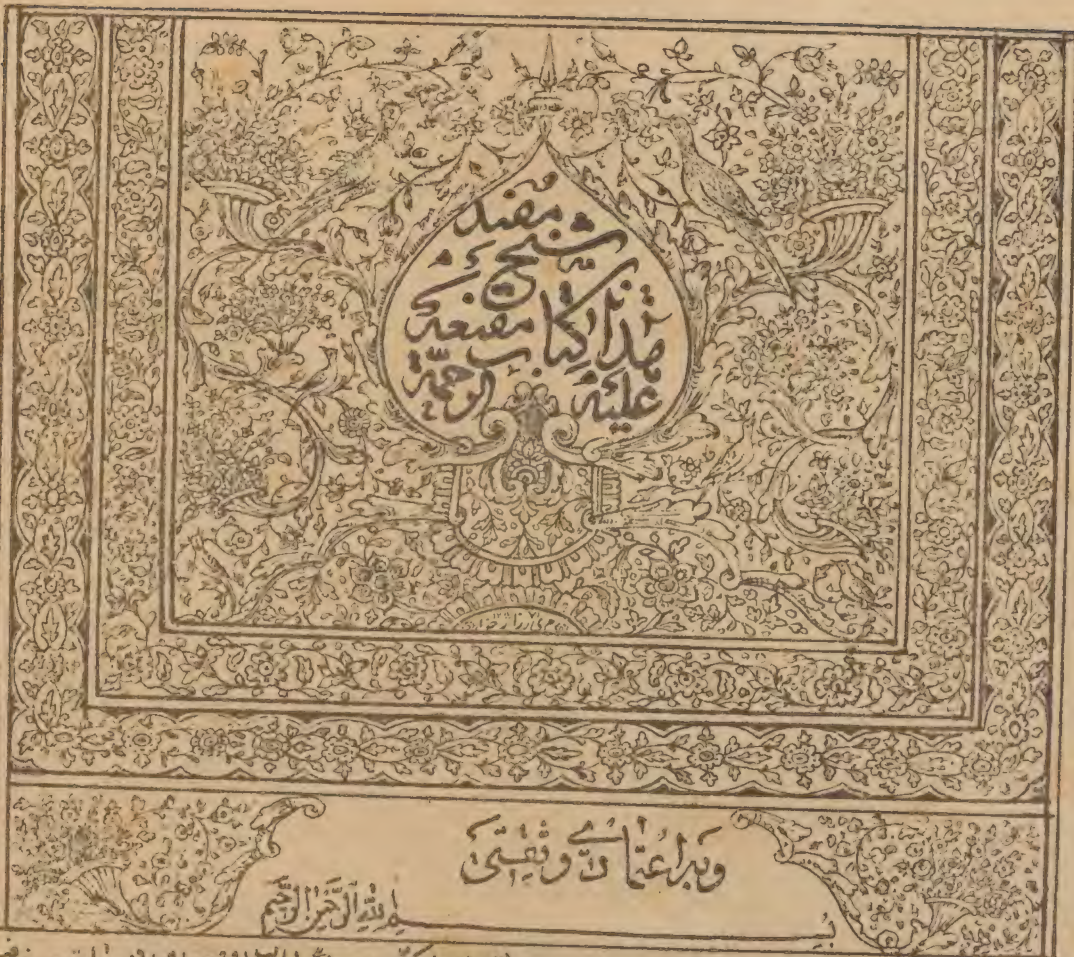 هذا كتاب مقنعه
شيخ مفيد
عليه الرحمة
وبه اعتمادي وثقتي
بسم الله الرحمن الرحيم